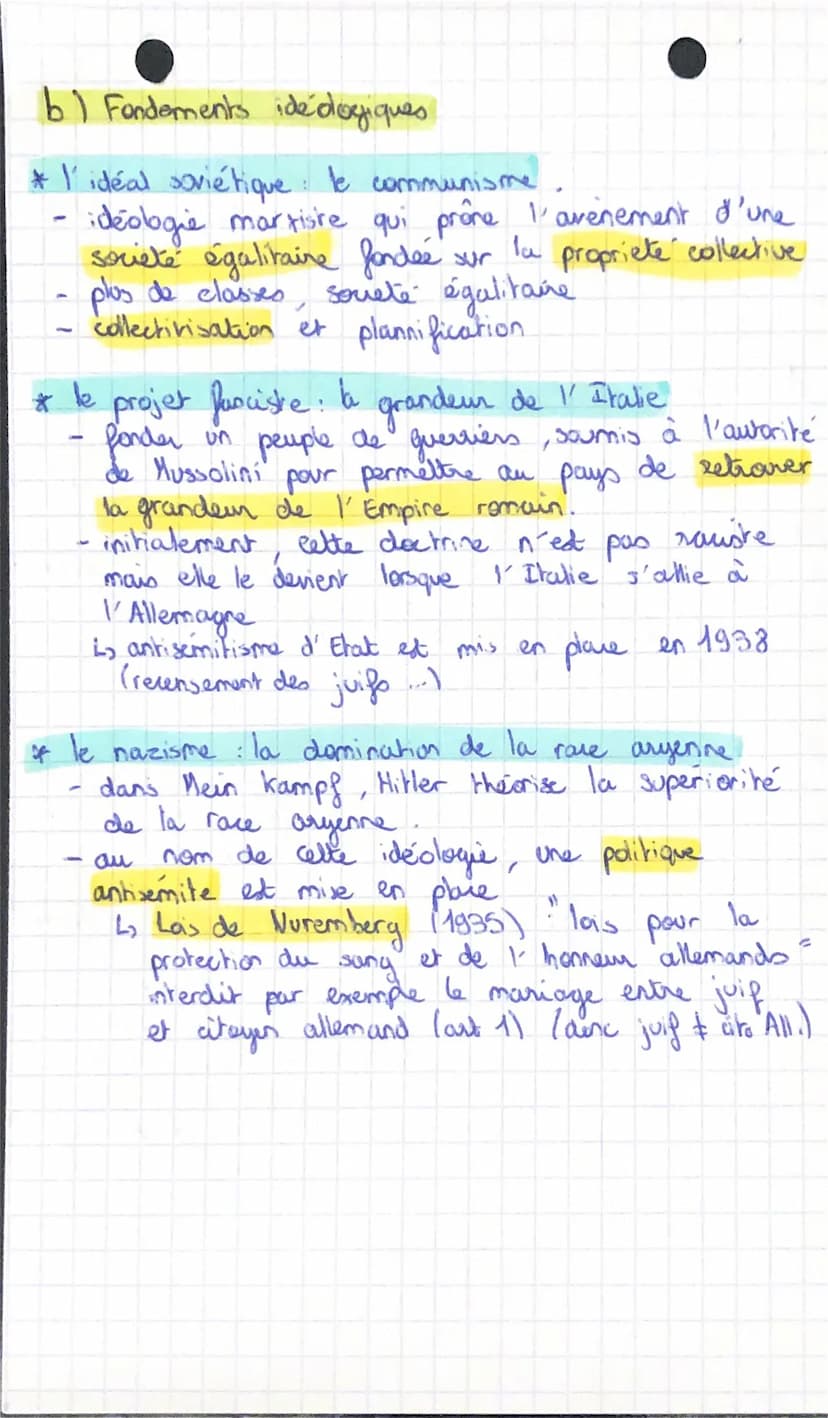 b) Fondements idéologiques
* l'idéal soviétique : le communisme.
- idéologie marxiste qui prône l'avènement d'une
société égalitaire fondée sur la propriété collective
- plus de classes, société égalitaire
- collectivisation et plannification
* le projet fasciste : la grandeur de l'Italie
- fonder un peuple de guerriers, soumis à l'autorité
de Mussolini pour permettre au pays de retrouver
la grandeur de l'Empire romain.
- initialement, cette doctrine n'est pas raciste
mais elle le devient lorsque l'Italie s'allie à
l'Allemagne
↳ antisémitisme d'Etat est mis en place en 1938
(recensement des juifs ...)
* le nazisme : la domination de la race aryenne
- dans Mein Kampf, Hitler théorise la supériorité
de la race aryenne.
- au nom de cette idéologie, une politique
antisémite est mise en place
↳ Lois de Nuremberg (1935) : "lois pour la
protection du sang et de l'honneur allemands"
interdit par exemple le mariage entre juif
et citoyen allemand (art 1) (donc juif ≠ cito All.)